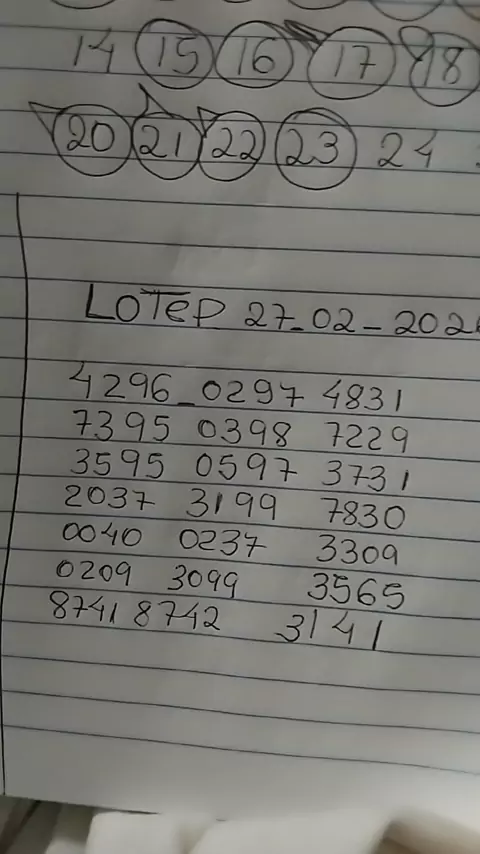 14 15 16 17 18
20 21 22 23 24
LOTEP 27-02-202
4296-0297 4831
7395 0398 7229
3595 0597 3731
2037 3199 7830
0040 0237 3309
0209 3099 3565
8741 8742 3141